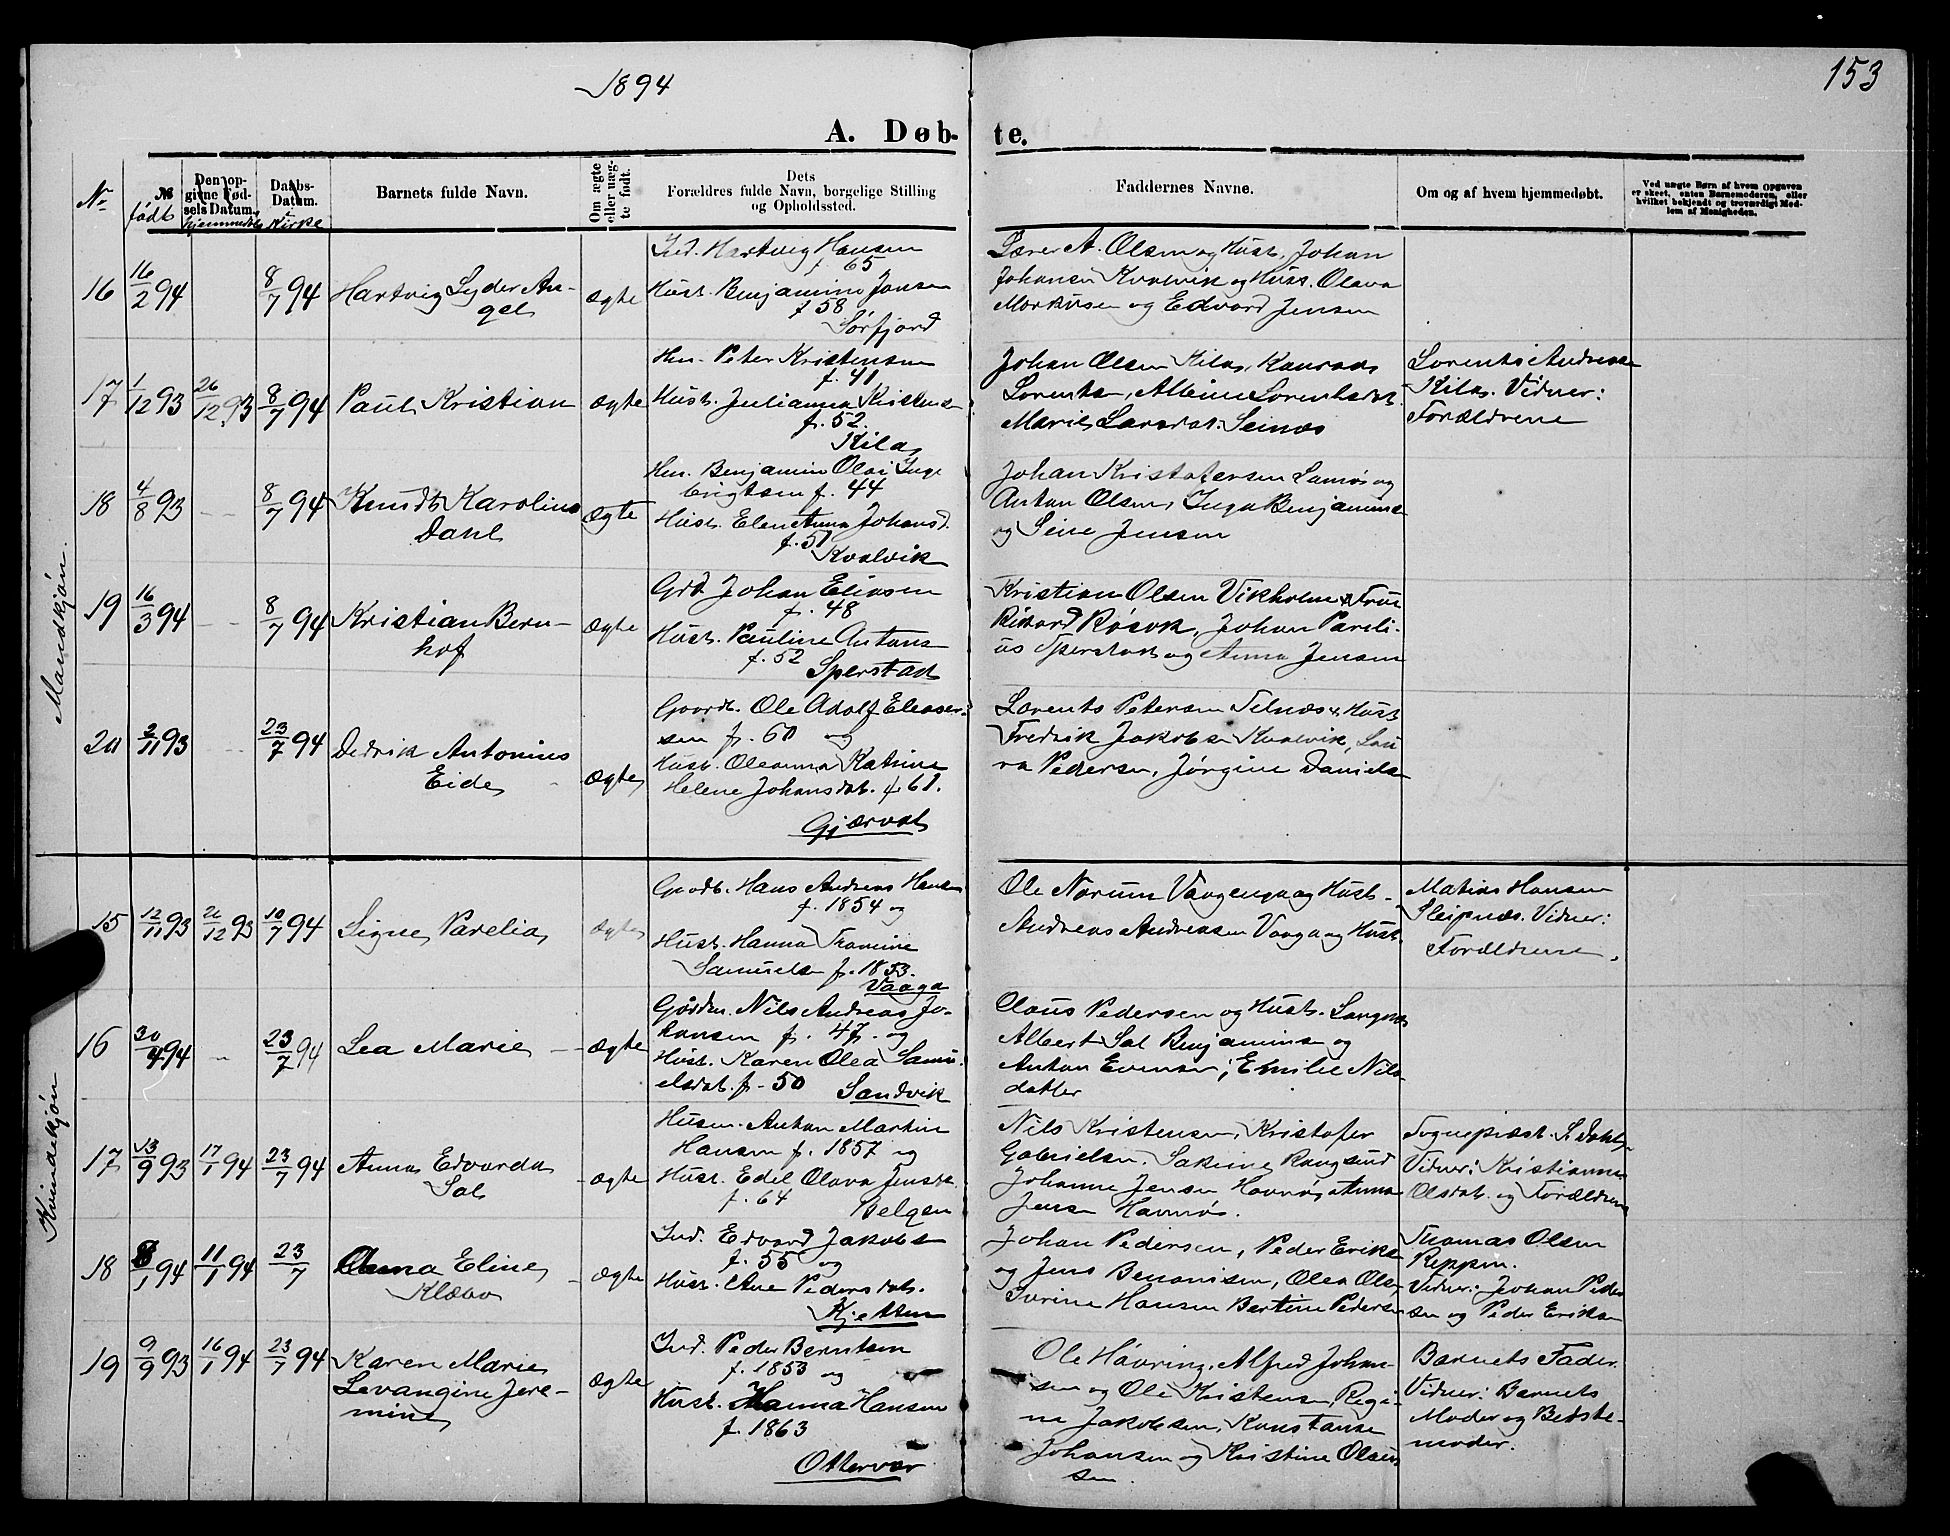 1894
153
A. Døb- te.
No
№ født
Den opgivne Fødsels Datum. hjemmedøbt
Daabs-Datum. i Kirke
Barnets fulde Navn.
Om ægte eller uægte født.
Dets Forældres fulde Navn, borgelige Stilling og Opholdssted.
Faddernes Navne.
Om og af hvem hjemmedøbt.
Ved uægte Børn af hvem Opgaven er skeet, enten Barnemoderen, eller hvilket bekjendt og troværdigt Medlem af Menigheden.
Mandkjøn.
16 16/2 94 8/7 94 Hartvig Lyder An-
gel ægte
Ind. Hartvig Hansen
f 65
Hust. Benjamine Jansen
f 58
Sørfjord
Lærer A. Olsen og Hust. Johan
Johansen Kvalvik og Hust. Olava
Markusen og Edvard Jensen
17 1/12 93 26/12 93 8/7 94 Paul Kristian ægte
Hm. Peter Kristensen
f. 41
Hust. Julianna Kristens
f. 52.
Kila
Johan Olsen Kila, Konrad
Lorentsen, Albine Lorentsdat.
Marie Larsdat. Seines
Lorents Andreas
Kila. Vidner:
Forældrene
18 4/8 93 - - 8/7 94 Knudt Karolius
Dahl ægte
Hm. Benjamin Olai Inge
brigtsen f. 44
Hust. Elen Anna Johansd.
f. 51
Kvalvik
Johan Kristofersen Lamøs og
Anton Olsen, Inga Benjamins
og Seine Jensen
19 16/3 94 - - 8/7 94 Kristian Bern-
hof ægte
Grd Johan Eliasen
f. 48
Hust. Pauline Antons
f. 52 Sperstad
Kristian Olsen Vikholm & Frue
Rikard Røsok, Johan Pareli-
us Sperstad og Anna Jensen
20 2/11 93 - - 23/7 94 Dedrik Antonius
Eide ægte
Gaardb. Ole Adolf Eleaser-
sen f. 60 og
Hust. Oleanna Katrine
Helene Johansdat. f 61.
Gjærval
Lorents Petersen Selnæs & Hust
Fredrik Jakobs Kvalvik, Lau
ra Pedersen, Jørgine Daniels
Kvindekjøn
15 12/11 93 26/12 93 10/7 94 Signe Parelia ægte
Gaardb. Hans Andreas Hansen
f. 1854 og
Hust. Hanna Framine
Samuels f. 1853.
Vaaga
Ole Norum Vaagenga og Hust.
Andreas Andreasen Vaaga og Hust.
Matias Hansen
Sleipnæs. Vidner:
Forældrene.
16 30/4 94 - 23/7 94 Lea Marie - ægte
Gaardm. Nils Andreas Jo-
hansen f. 47. og
Hust. Karen Olea Samu-
elsdat. f. 50 Sandvik
Claus Pedersen og Hust. Langnæs
Albert Sal Benjamins og
Anton Evensen, Emilie Nils
datter
17 13/9 93 17/1 94 23/7 94 Anna Edvarda
Sal - ægte
Husm. Anton Martin
Hansen f. 1857 og
Hust. Edel Olava Jensdt.
f. 64 Selgsen
Nils Kristensen, Kristofer
Gabrielsen. Sakrine Raugsund
Johanne Jensen Havnøs, Anna
Jensen Havnøs.
Sognepræst. S. Dahl,
Vidner: Kristianna
Olsdat. og Forældrene
18 8/1 94 11/1 94 23/7 Anna Eline
Klæbo - ægte
Ind. Edvard Jakobs
f. 55 og
Hust. Ane Pedersdat.
Kjetsen
Johan Pedersen, Peder Eriks
og Jens Benonisen, Olea Ols,
Serine Hansen Bertine Peders
Thomas Olsen
Reppen.
Vidner: Johan Peder
sen og Peder Eriksen
19 9/9 93 16/1 94 23/7 94 Karen Marie
Levangine Jere-
mine ægte
Ind. Peder Berntsen
f. 1853 og
Hust. Hanna Hansen
f. 1863
Ottervær
Ole Hauring, Alfred Johan-
sen og Ole Kristensen, Regi-
ne Jakobsen, Konstanse
Johansen og Kristine Olaus
sen.
Barnets Fader.
Vidner: Barnets
Moder og Bedste-
moder.